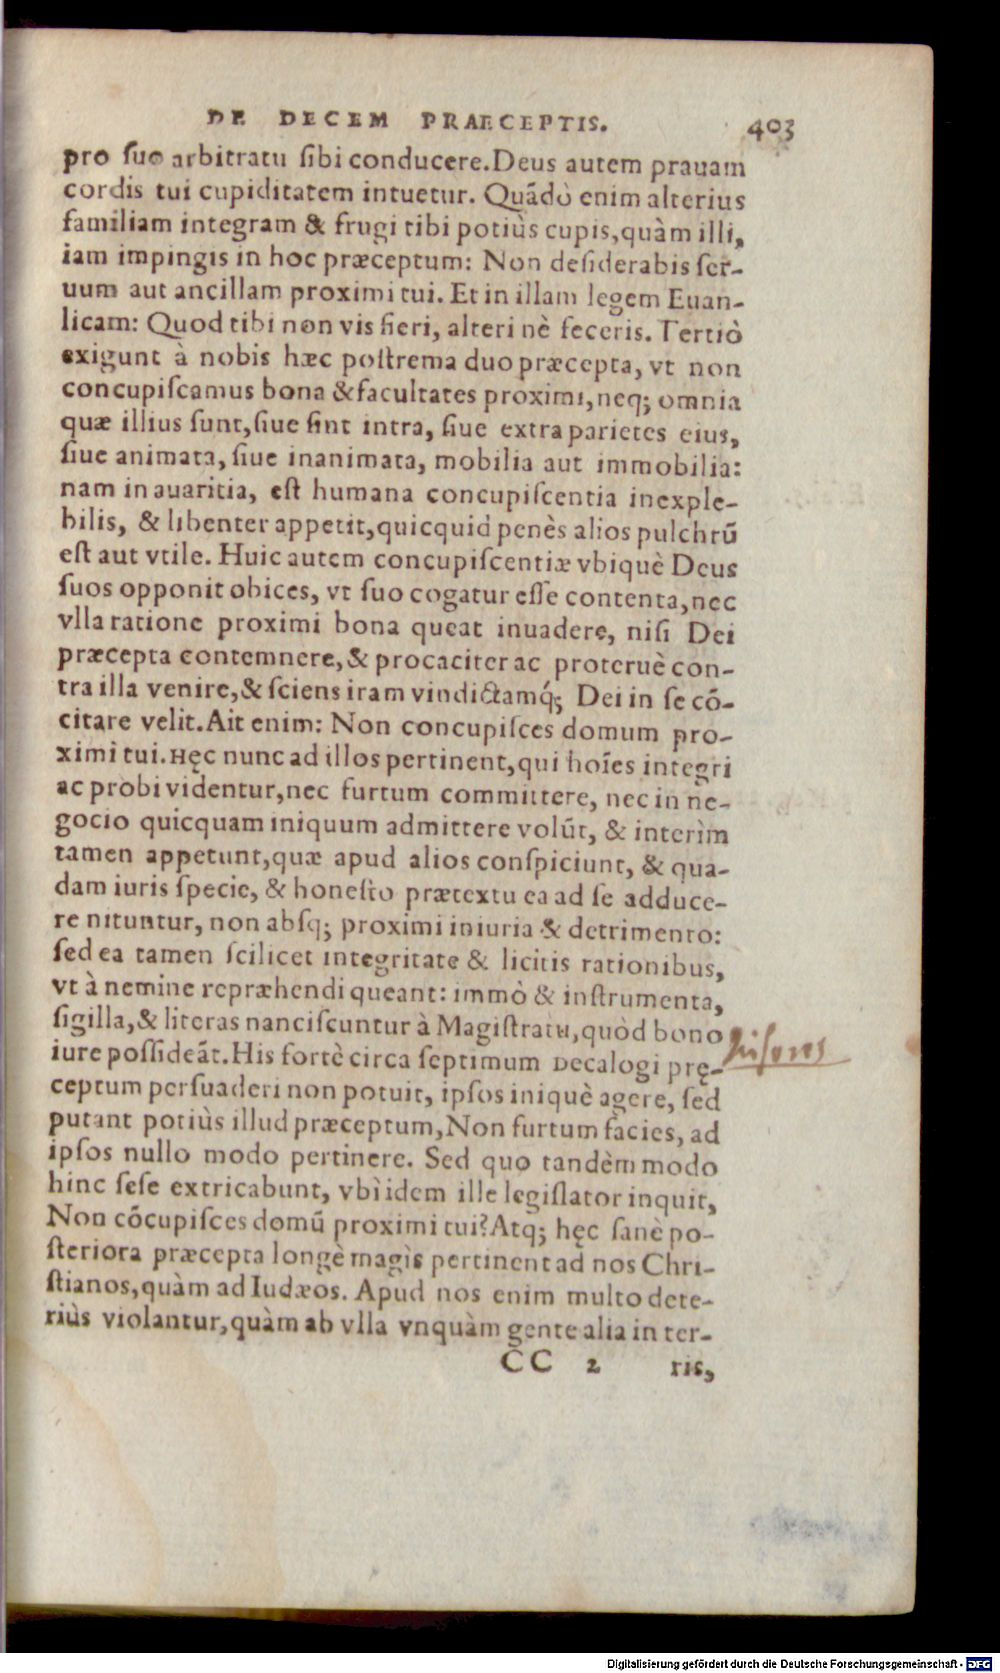 DE DECEM PRAECEPTIS. 403
pro suo arbitratu sibi conducere. Deus autem prauam
cordis tui cupiditatem intuetur. Quãdò enim alterius
familiam integram & frugi tibi potiùs cupis, quàm illi,
iam impingis in hoc præceptum: Non desiderabis ser-
uum aut ancillam proximi tui. Et in illam legem Euan-
licam: Quod tibi non vis fieri, alteri nè feceris. Tertiò
exigunt à nobis hæc postrema duo præcepta, vt non
concupiscamus bona & facultates proximi, neq; omnia
quæ illius sunt, siue sint intra, siue extra parietes eius,
siue animata, siue inanimata, mobilia aut immobilia:
nam in auaritia, est humana concupiscentia inexple-
bilis, & libenter appetit, quicquid penès alios pulchrũ
est aut vtile. Huic autem concupiscentiæ vbiquè Deus
suos opponit obices, vt suo cogatur esse contenta, nec
vlla ratione proximi bona queat inuadere, nisi Dei
præcepta contemnere, & procaciter ac proteruè con-
tra illa venire, & sciens iram vindictamq́; Dei in se cõ-
citare velit. Ait enim: Non concupisces domum pro-
ximi tui. Hęc nunc ad illos pertinent, qui hoĩes integri
ac probi videntur, nec furtum committere, nec in ne-
gocio quicquam iniquum admittere volũt, & interìm
tamen appetunt, quæ apud alios conspiciunt, & qua-
dam iuris specie, & honesto prætextu ea ad se adduce-
re nituntur, non absq; proximi iniuria & detrimento:
sed ea tamen scilicet integritate & licitis rationibus,
vt à nemine repræhendi queant: immò & instrumenta,
sigilla, & literas nanciscuntur à Magistratu, quòd bono
iure possideãt. His fortè circa septimum Decalogi prę-
ceptum persuaderi non potuit, ipsos iniquè agere, sed
putant potiùs illud præceptum, Non furtum facies, ad
ipsos nullo modo pertinere. Sed quo tandèm modo
hinc sese extricabunt, vbì idem ille legislator inquit,
Non cõcupisces domũ proximi tui? Atq; hęc sanè po-
steriora præcepta longè magìs pertinent ad nos Chri-
stianos, quàm ad Iudæos. Apud nos enim multo dete-
riùs violantur, quàm ab vlla vnquàm gente alia in ter-
CC 2 ris,
Digitalisierung gefördert durch die Deutsche Forschungsgemeinschaft - DFG